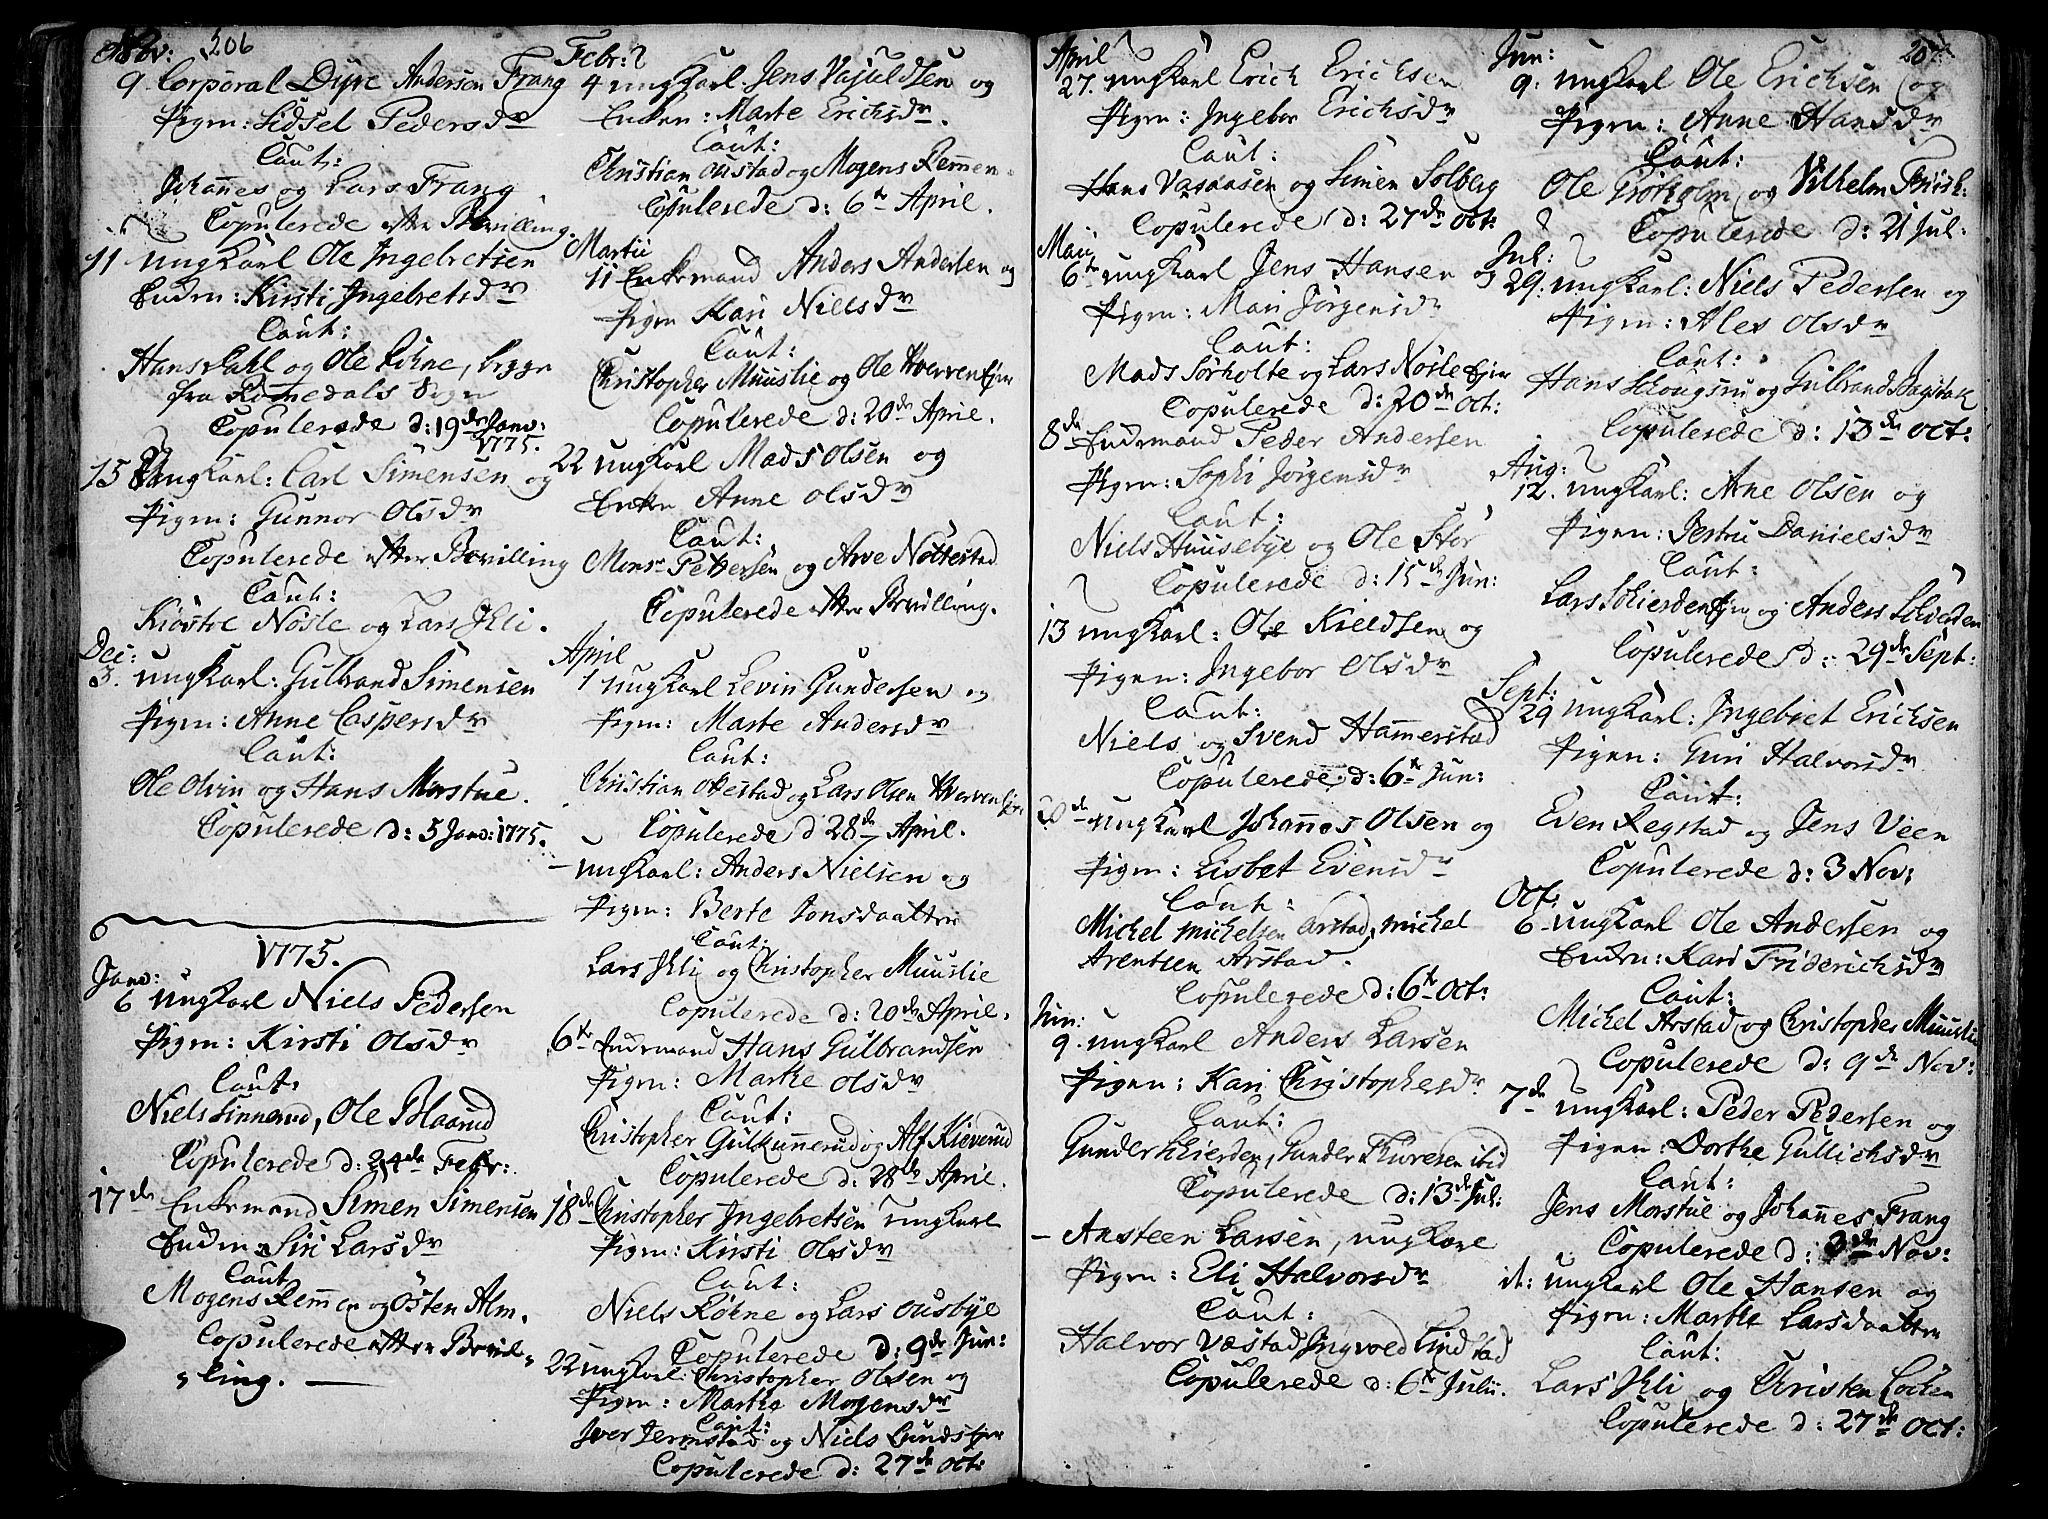 206
Nov:
9. Corporal Dyre Andersen Frang
Pigen: Sidsel Pedersdr
Caut:
Johannes og Lars Frang
Copulerede efter Bevilling.
11 Ungkarl Ole Ingebretsen
Enken: Kirsti Ingebretsdr
Caut:
Hans Dahl og Ole Røhne, begge
fra Romedals Sogn
Copulerede d: 19de Janv: 1775.
15 Ungkarl: Carl Simensen og
Pigen: Gunnor Olsdr
Copulerede efter Bevilling
Caut:
Kiøstol Nøsle og Lars Ihli.
Dec:
3. Ungkarl: Gulbrand Simensen
Pigen: Anne Caspersdr
Caut:
Ole Olvin og Hans Morstue.
Copulerede d: 5 Janv: 1775.
1775.
Janv:
6 Ungkarl Niels Pedersen
Pigen: Kirsti Olsdr
Caut:
Niels Finnerud, Ole Blaarud
Copulerede d: 24de Febr:
17de Enkemand Simen Simensen
Enken Siri Larsdr
Caut
Mogens Remmen og Østen Alm.
Copulerede efter Bevil-
ling.
Febr:
4 Ungkarl Jens Vajuldsen og
Enken: Marte Erichsdr.
Caut:
Christian Oustad og Mogens Remmen
Copulerede d: 6te April.
Martii
11 Enkemand Anders Andersen og
Pigen Kari Nielsdr
Caut:
Christopher Muuslie og Ole Hverven Ejer
Copulerede d: 20de April.
22 Ungkarl Mads Olsen og
Enken Anne Olsdr
Caut:
Monsr Pettersen og Arve Nøttestad
Copulerede efter Bevilling.
April
1 Ungkarl Levin Gundersen og
Pigen: Marte Andersdr
Caut:
Christian Ottestad og Lars Olsen Hverven Ejer
Copulerede d 28de April.
- Ungkarl: Anders Nielsen og
Pigen: Berte Jonsdaatter
Caut:
Lars Ihli og Christopher Muuslie
Copulerede d: 20de April.
6te Enkemand Hans Gulbrandsen
Pigen: Marthe Olsdr
Caut:
Christopher Gulkunnerud og Alf Kieverud
Copulerede d: 28de April.
18de Christopher Ingebretsen Ungkarl
Pigen: Kirsti Olsdr
Caut:
Niels Røhne og Lars Ousbye
Copulerede d: 9de Jun:
22 Ungkarl: Christopher Olsen og
Pigen: Marthe Mogensdr
Caut:
Iver Jermstad og Niels Lunds Ejer
Copulerede d: 27de Oct:
April
27. Ungkarl Erich Erichsen
Pigen: Ingebor Erichsdr
Caut:
Hans Vasaasen og Simen Solberg
Copulerede d: 27de Oct:
Maii
6te Ungkarl Jens Hansen og
Pigen: Mari Jørgensdr
Caut:
Mads Sørholte og Lars Nøsle Ejer
Copulerede d: 20de Oct:
8de Enkemand Peder Andersen
Pigen: Sophi Jørgensdr
Caut:
Niels Huusebye og Ole Stor
Copulerede d: 15de Jun:
13 Ungkarl: Ole Kieldsen og
Pigen: Ingebor Olsdr
Caut:
Niels og Svend Hammerstad
Copulerede d: 6te Jun:
20de Ungkarl Johannes Olsen og
Pigen: Lisbet Evensdr
Caut:
Michel Michelsen Arstad, Michel
Arentsen Arstad.
Copulerede d: 6te Oct:
Jun:
9. Ungkarl Anders Larsen
Pigen: Kari Christophersdr
Caut:
Gunder Skierden, Gunder Thoresen ibid
Copulerede d: 13de Jul:
- Ansteen Larsen, Ungkarl
Pigen: Eli Halvorsdr
Caut:
Halvor Væstad, Ingvold Lindstad
Copulerede d: 6te Julii.
207
Jun:
9: Ungkarl Ole Erichsen og
Pigen: Anne Hansdr
Caut:
Ole Grøtholm og Vilhelm Frisk:
Copulerede d: 21 Jul:
Jul:
29: Ungkarl: Niels Pedersen og
Pigen: Ales Olsdr
Caut:
Hans Schougsru og Gulbrand Bagstak
Copulerede d: 13de Oct:
Aug:
12. Ungkarl: Arne Olsen og
Pigen: Jertru Danielsdr
Caut:
Lars Schierden Ejer og Anders Schierden
Copulerede d: 29de Sept:
Sept:
29 Ungkarl: Ingebret Erichsen
Pigen: Guri Halvorsdr
Caut:
Even Regstad og Jens Veen
Copulerede d: 3 Nov:
Oct:
6. Ungkarl Ole Andersen og
Enken: Kari Friderichsdr
Caut:
Michel Arstad og Christopher Muuslie
Copulerede d: 9de Nov:
7de Ungkarl: Peder Pedersen og
Pigen: Dorthe Gullichsdr
Caut:
Jens Morstue og Johannes Frang
Copulerede d: 3de Nov:
it: Ungkarl Ole Hansen og
Pigen: Marthe Larsdaatter
Caut:
Lars Ihli og Christen Løcken
Copulerede d: 27de Oct: